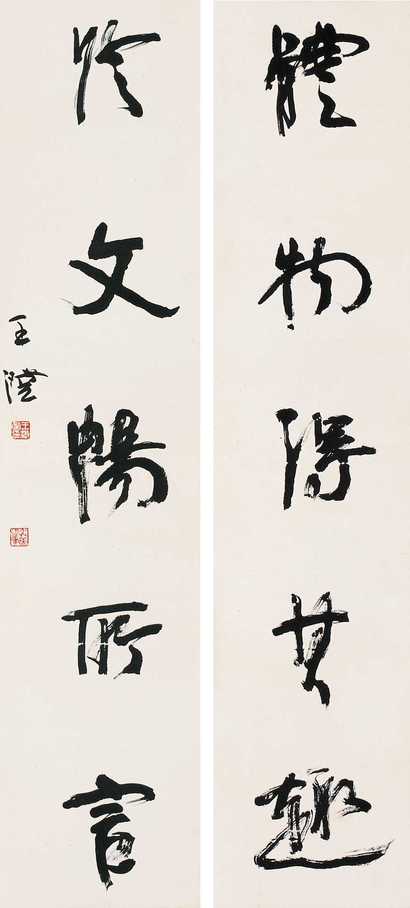 體物得其趣
於文暢所言
王澄